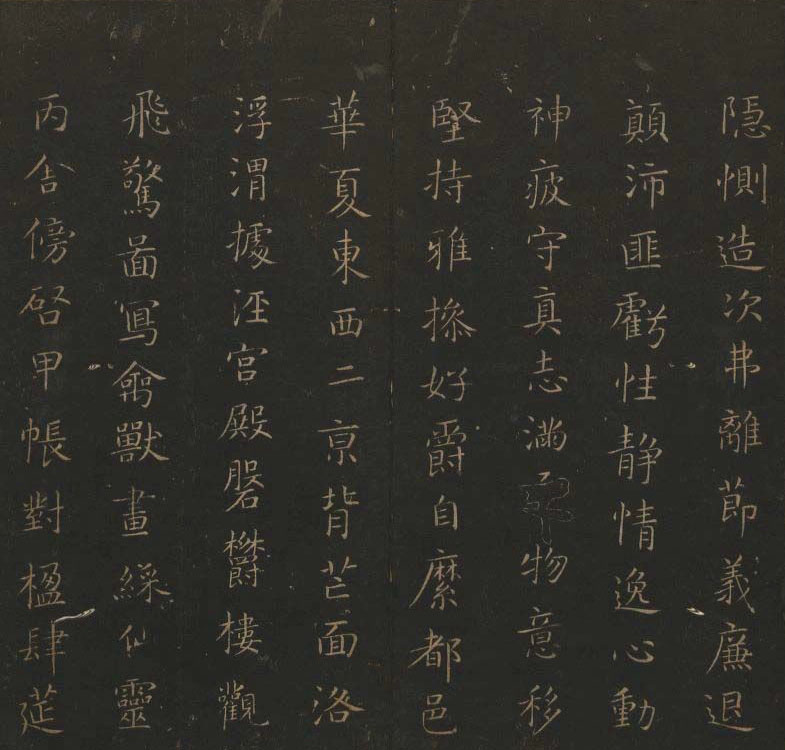 隱惻造次弗離節義廉退
顛沛匪虧性静情逸心動
神疲守真志滿物意移
堅持雅操好爵自縻都邑
華夏東西二京背芒面洛
浮渭據涇宮殿磐欝樓觀
飛驚啚寫禽獸畫綵仙靈
丙舍傍啓甲帳對楹肆莚